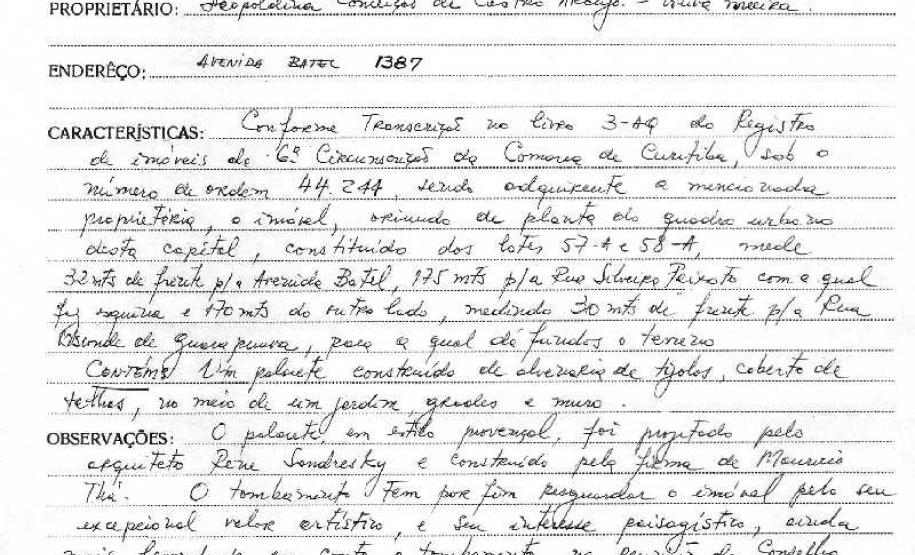 PROPRIETÁRIO: Leopoldina Conceição de Castro Araujo. - viuva meeira.
ENDERÊÇO: AVENIDA BATEL 1387
CARACTERÍSTICAS: Conforme Transcrição no livro 3-AQ do Registro
de imóveis de 6ª Circunscrição da Comarca de Curitiba, sob o
número de ordem 44.244, sendo adquirente a mencionada
proprietária, o imóvel, oriundo de planta do quadro urbano
desta capital, constituido dos lotes 57-A e 58-A, mede
32 mts de frente p/a Avenida Batel, 175 mts p/a Rua Silveira Peixoto com a qual
faz esquina e 170 mts do outro lado, medindo 30 mts de frente p/a Rua
Visconde de Guarapuava, para a qual dá fundos o terreno
CONTÉM: Um palacete construido de alvenaria de tijolos, coberto de
telhas, no meio de um jardim, grades e muro.
OBSERVAÇÕES: O palacete, em estilo provençal, foi projetado pelo
arquiteto Rene Sandresky e construido pela firma de Mauricio
Thá. O tombamento tem por fim resguardar o imóvel pelo seu
excepcional valor artístico, e seu interesse paisagístico, ainda
mais levando em conta o tombamento na reunião do Conselho